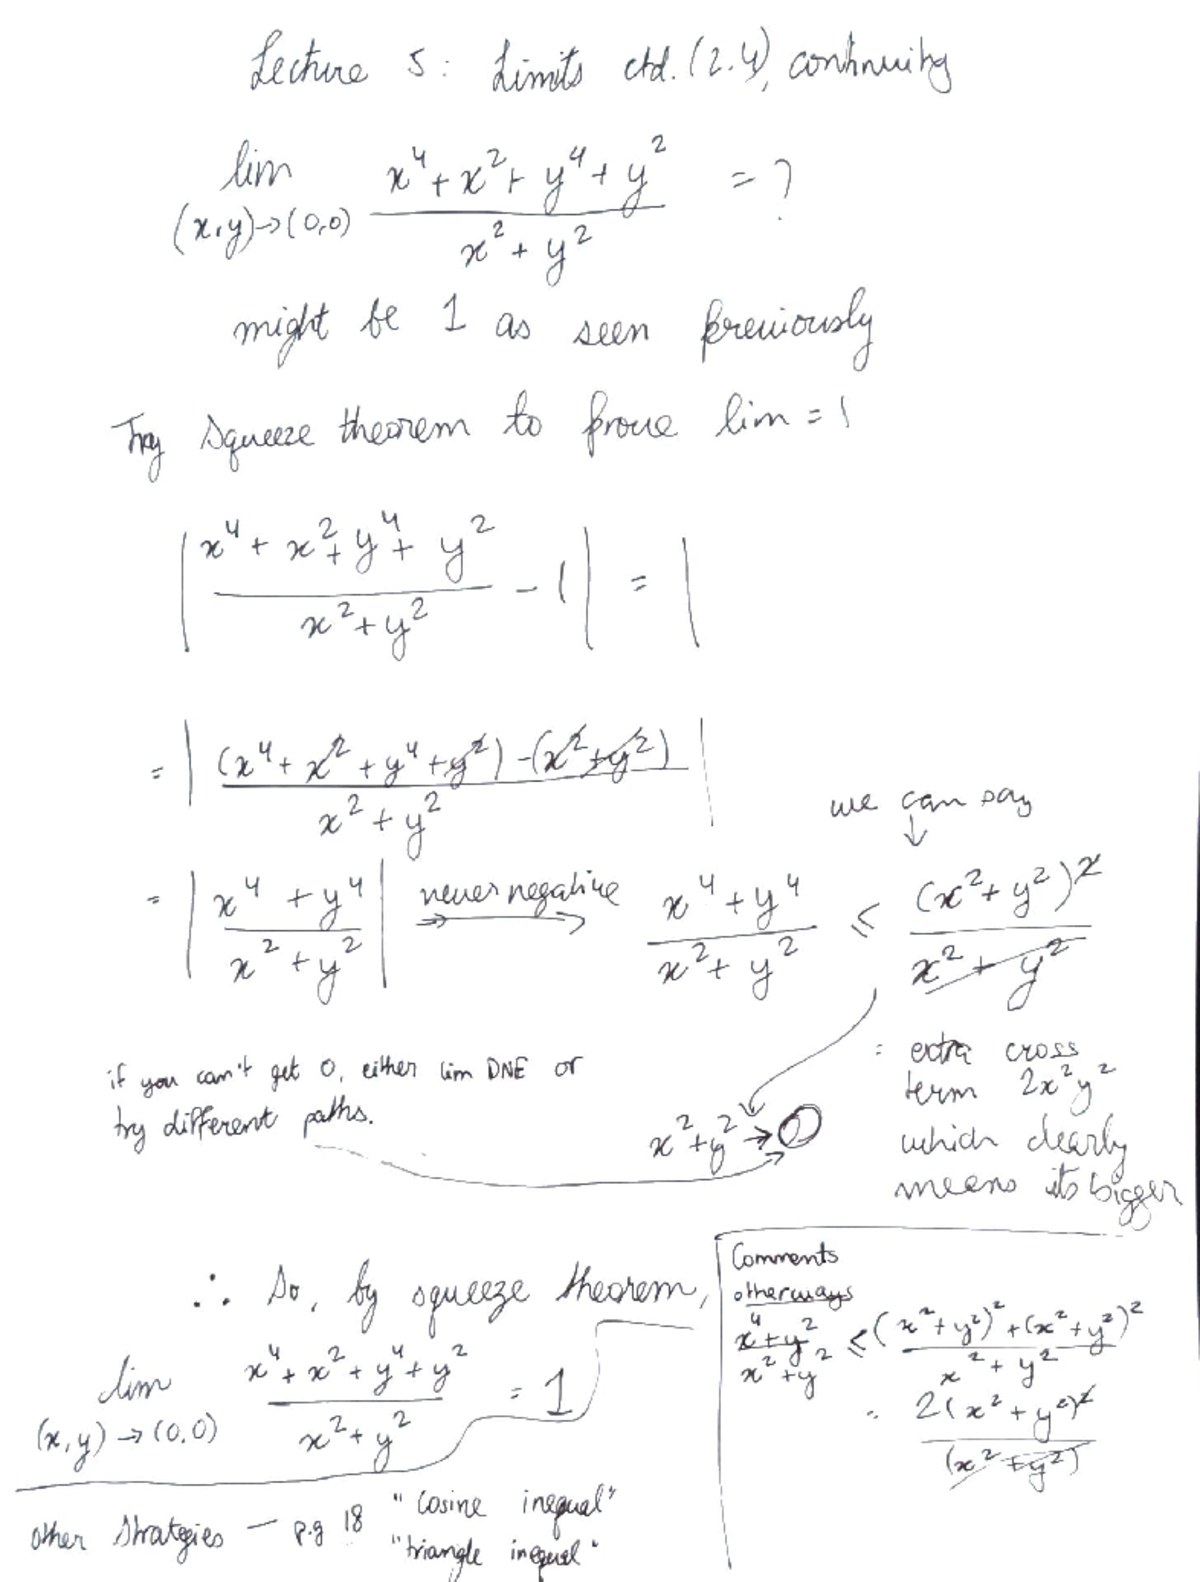 Lecture 5: Limits ctd. (2.4), continuity
lim (x,y)→(0,0) (x^4 + x^2 + y^4 + y^2)/(x^2 + y^2) = ?
might be 1 as seen previously
Try squeeze theorem to prove lim = 1
|(x^4 + x^2 + y^4 + y^2)/(x^2 + y^2) - 1| = |
= |((x^4 + x^2 + y^4 + y^2) - (x^2 + y^2))/(x^2 + y^2)|
we can say
↓
= |(x^4 + y^4)/(x^2 + y^2)| never negative → (x^4 + y^4)/(x^2 + y^2) ≤ (x^2 + y^2)^2/(x^2 + y^2)
= extra cross
term 2x^2y^2
which clearly
means its bigger
if you can't get 0, either lim DNE or
try different paths.
x^2 + y^2 → 0
∴ So, by squeeze theorem,
lim (x,y)→(0,0) (x^4 + x^2 + y^4 + y^2)/(x^2 + y^2) = 1
Comments
otherways
(x^4 + y^2)/(x^2 + y^2) ≤ ((x^2 + y^2)^2 + (x^2 + y^2)^2)/(x^2 + y^2)
= 2(x^2 + y^2)^2/(x^2 + y^2)
other Stratgies — p.g 18 "cosine inequal"
"triangle inequal"